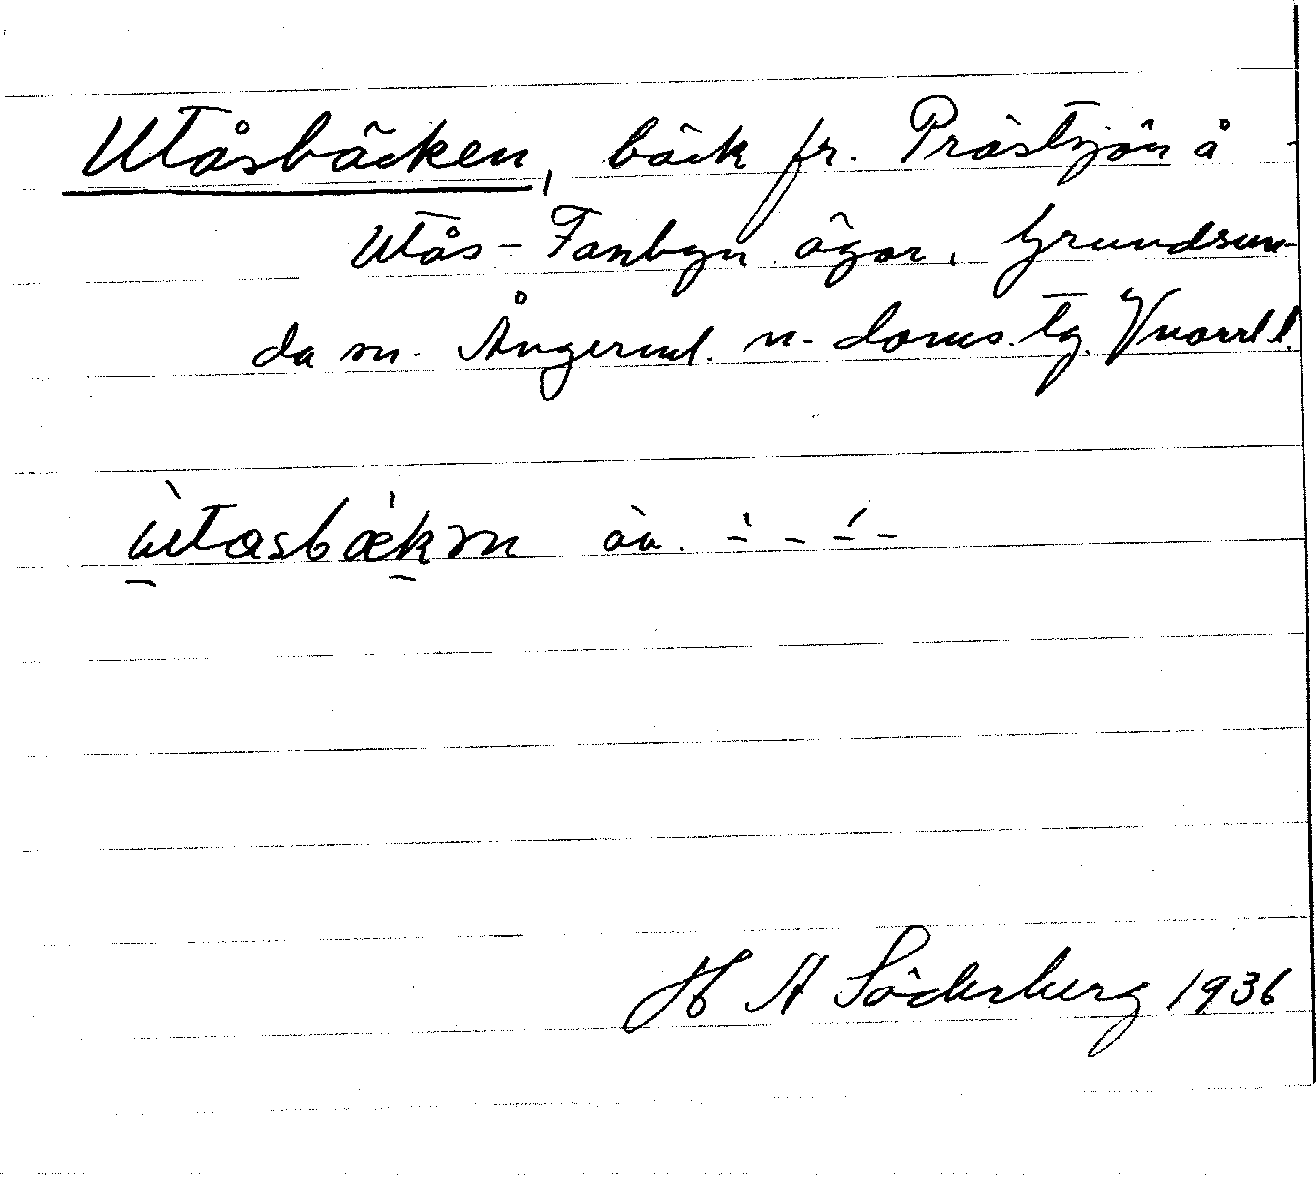 Utåsbäcken, bäck fr. Prästsjön å
Utås-Fanbyn ägor, Grundsun-
da sn. Ångerml. n. doms. tg. Vnorrl l.
ùtasbækən äv.
H A Söderberg 1936